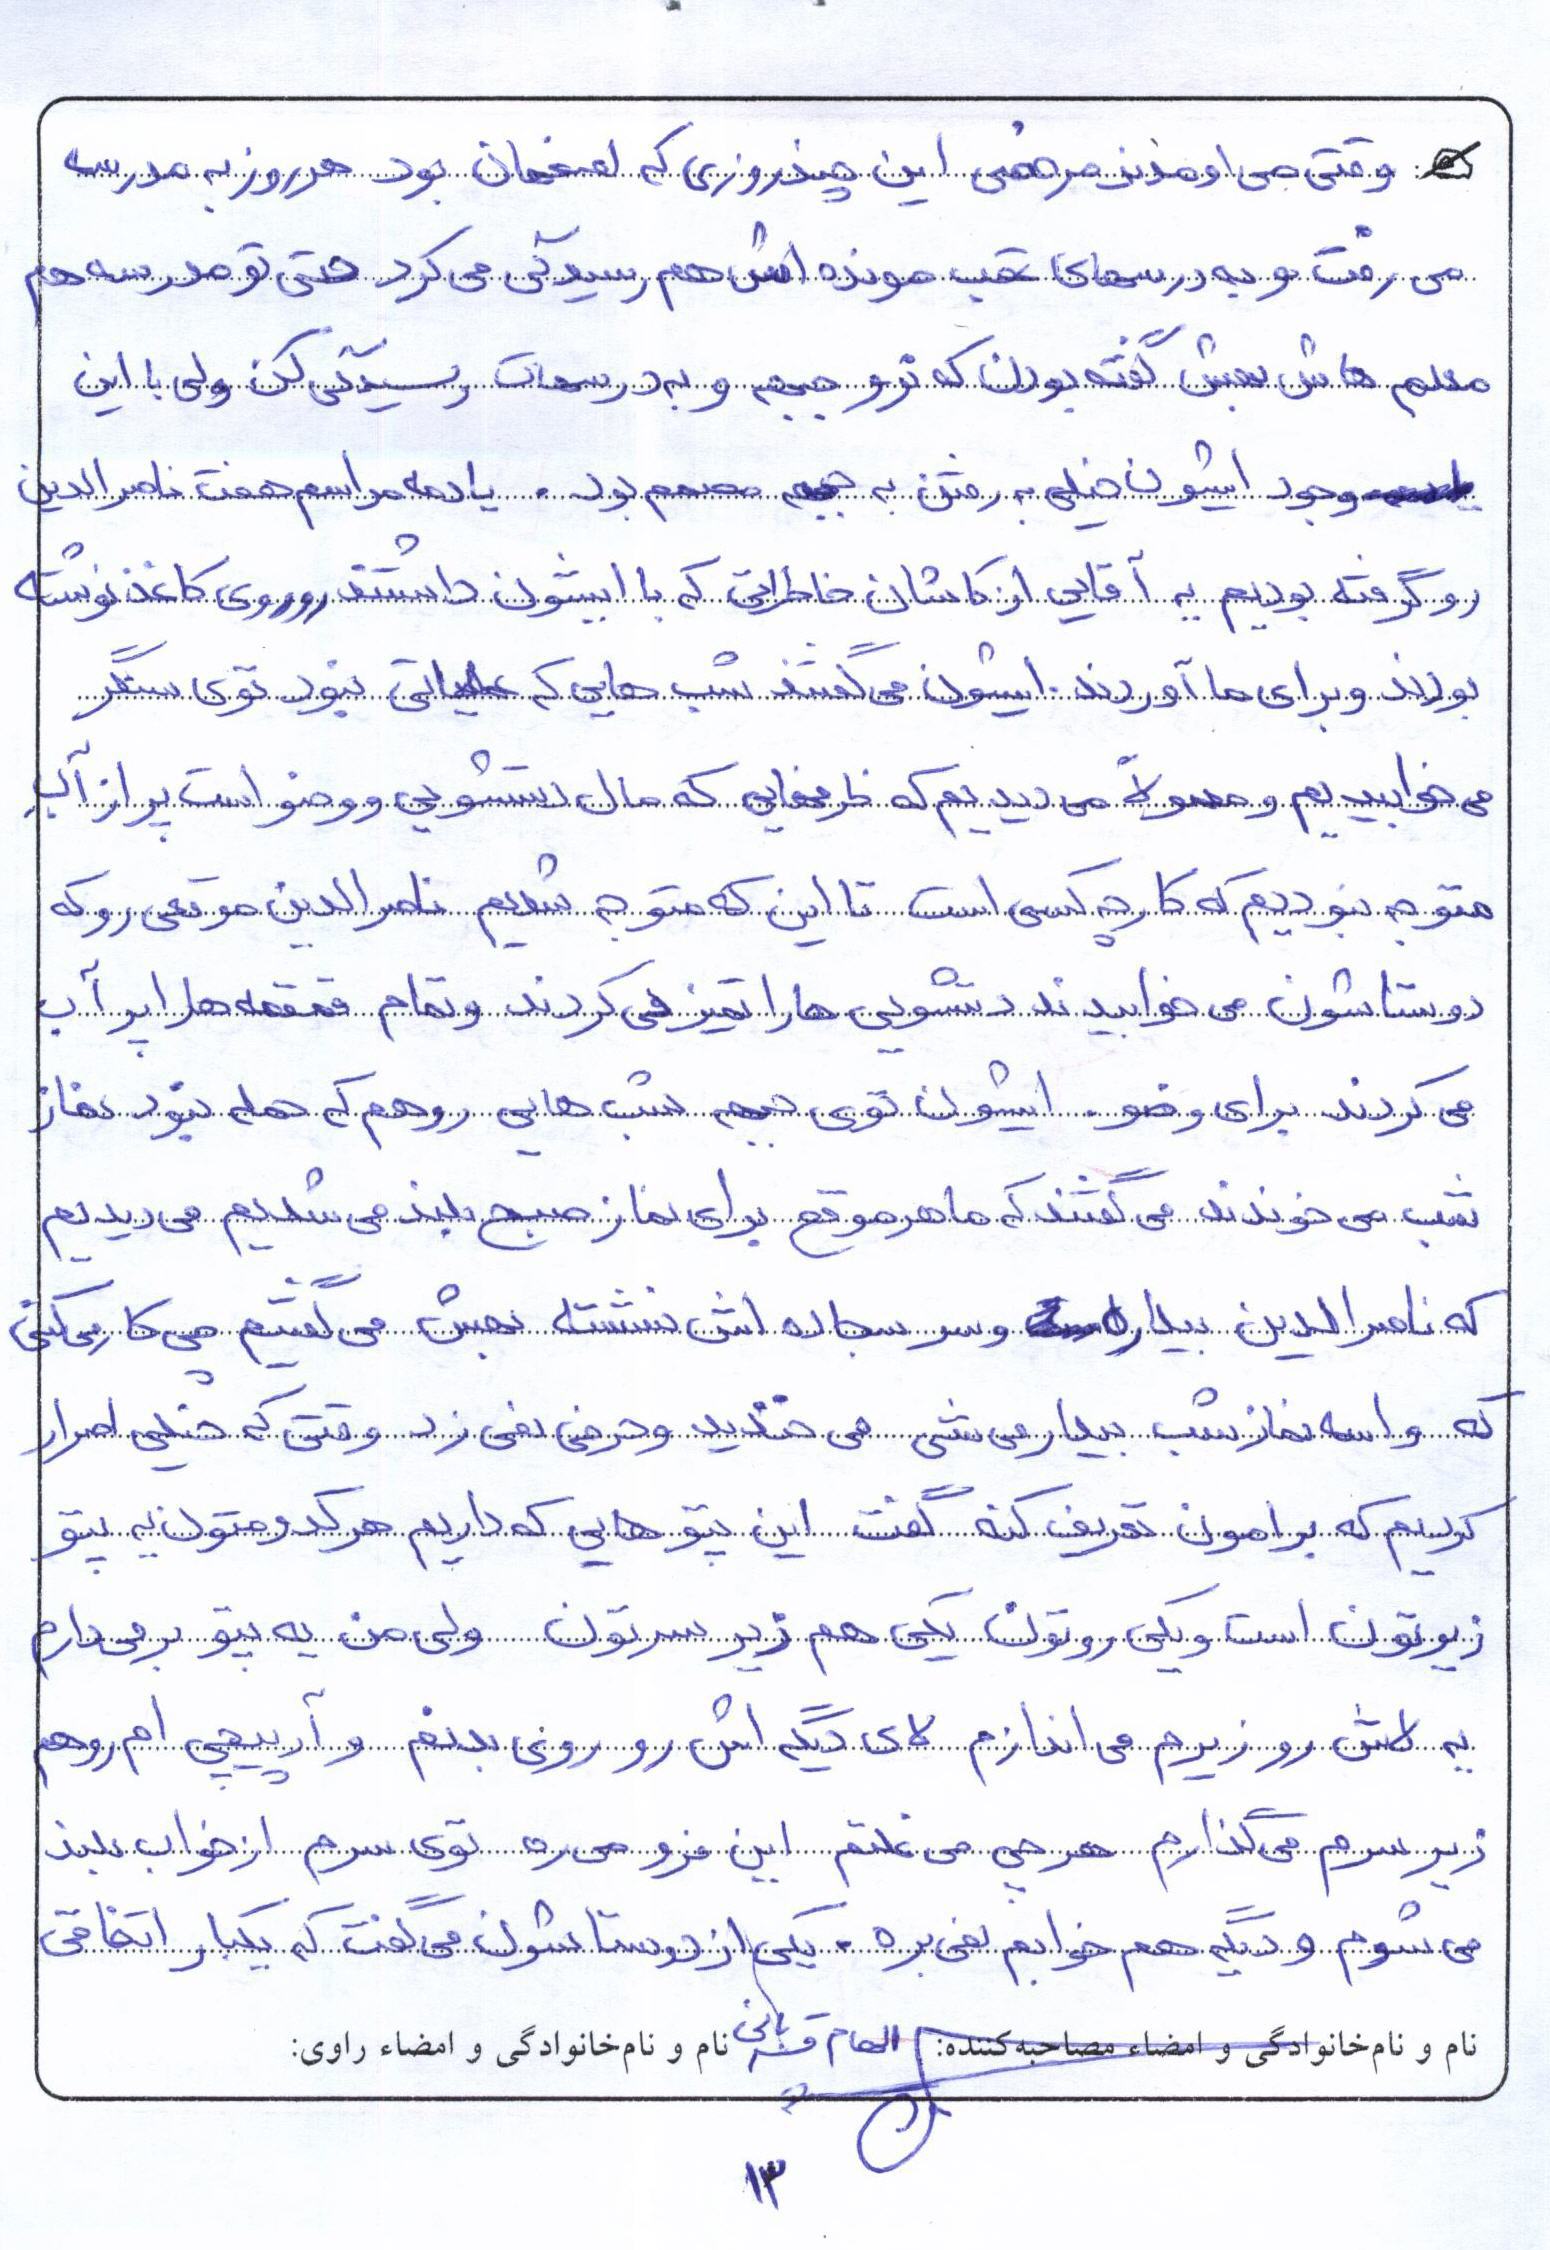 وقتی می اومدند مرخصی این چندروزی که اصفهان بود هر روز به مدرسه
می رفت و به درسهای عقب مونده اش هم رسیدگی می کرد حتی تو مدرسه هم
معلم هاش بهش گفته بودن که نرو جبهه و به درسهات رسیدگی کن ولی با این
وجود ایشون خیلی به رفتن به جبهه مصمم بود . یادمه مراسم هفت ناصرالدین
رو گرفته بودیم یه آقایی از کاشان خاطراتی که با ایشون داشتند رو روی کاغذ نوشته
بودند و برای ما آوردند . ایشون می گفتند شب هایی که عملیاتی نبود توی سنگر
می خوابیدیم و معمولاً می دیدیم که ظرفهایی که مال دستشویی و وضو است پر از آب
متوجه نبودیم که کار چه کسی است تا این که متوجه شدیم ناصرالدین موقعی رو که
دوستاشون می خوابیدند دستشویی ها را تمیز می کردند و تمام قمقمه ها را پر آب
می کردند برای وضو . ایشون توی جبهه شب هایی رو هم که حمله نبود نماز
شب می خوندند می گفتند که ما هر موقع برای نماز صبح بلند می شدیم می دیدیم
که ناصرالدین بیداره و سر سجاده اش نشسته بهش می گفتیم چی کار می کنی
که واسه نماز شب بیدار می شی می خندید و حرفی نمی زد وقتی که خیلی اصرار
کردیم که برامون تعریف کنه گفت این پتو هایی که داریم هر کدومتون یه پتو
زیرتون است و یکی روتون یکی هم زیر سرتون ولی من یه پتو بر می دارم
یه لاش رو زیرم می اندازم لای دیگه اش رو روی بدنم و آرپیچی ام رو هم
زیر سرم می گذارم هر چی می غلتم این فرو می ره توی سرم از خواب بلند
می شوم و دیگه هم خوابم نمی بره . یکی از دوستاشون می گفت که یکبار اتفاقی
نام و نام‌خانوادگی و امضاء مصاحبه‌کننده: الهام قربانی نام و نام‌خانوادگی و امضاء راوی:
۱۳